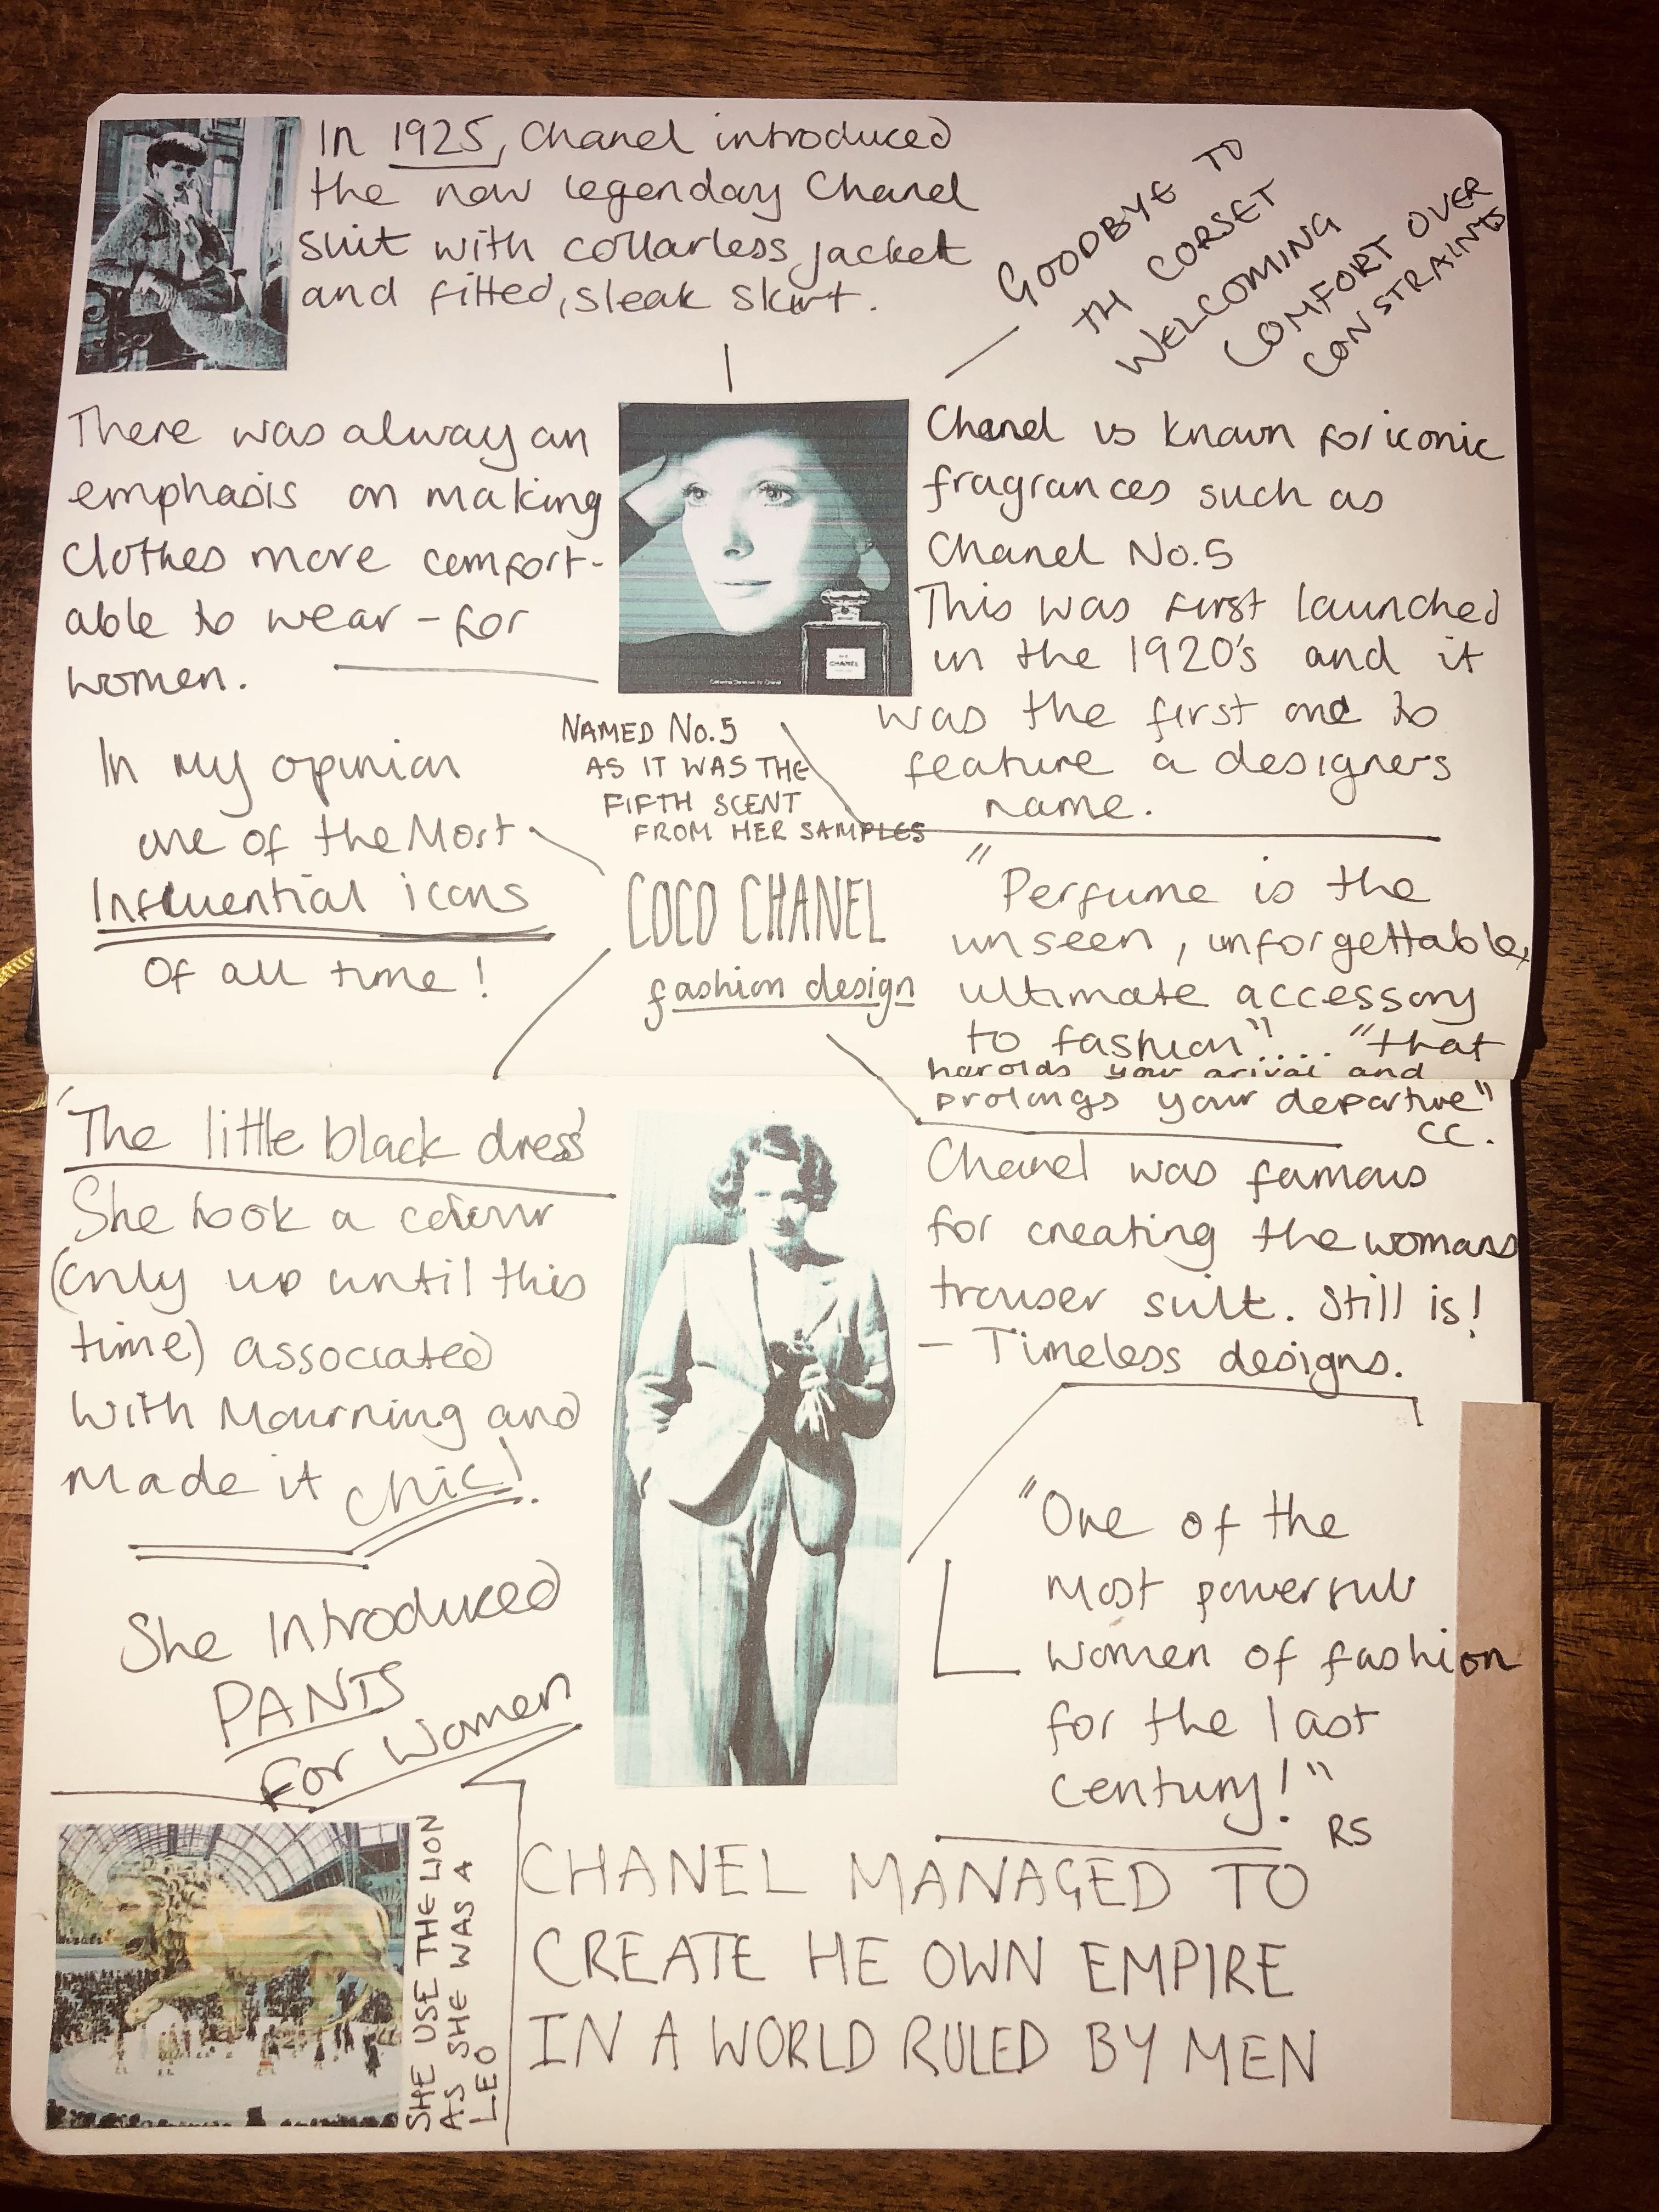 In 1925, Chanel introduced
the now legenday Chanel
suit with collarless jacket
and fitted, sleak skirt.
GOODBYE TO
TH CORSET
WELCOMING
COMFORT OVER
CONSTRAINTS
There was alway an
emphasis on making
clothes more comfort-
able to wear - for
women.
CHANEL
Chanel is known for iconic
fragrances such as
Chanel No.5
This was first launched
in the 1920's and it
was the first one to
feature a designers
name.
NAMED No.5
AS IT WAS THE
FIFTH SCENT
FROM HER SAMPLES
In my opinion
one of the Most
Influential icons
Of all time!
COCO CHANEL
fashion design
"Perfume is the
unseen, unforgettable,
ultimate accessory
to fashion".... "that
harolds your arival and
prolongs your departure"
CC.
'The little black dress'
She took a colour
(only up until this
time) associated
with Mourning and
made it chic!
Chanel was famous
for creating the womans
trouser suit. Still is!
- Timeless designs.
She Introduced
PANTS
For Women
"One of the
Most powerful
women of fashion
for the last
century!"
RS
SHE USE THE LION
AS SHE WAS A
LEO
CHANEL MANAGED TO
CREATE HE OWN EMPIRE
IN A WORLD RULED BY MEN